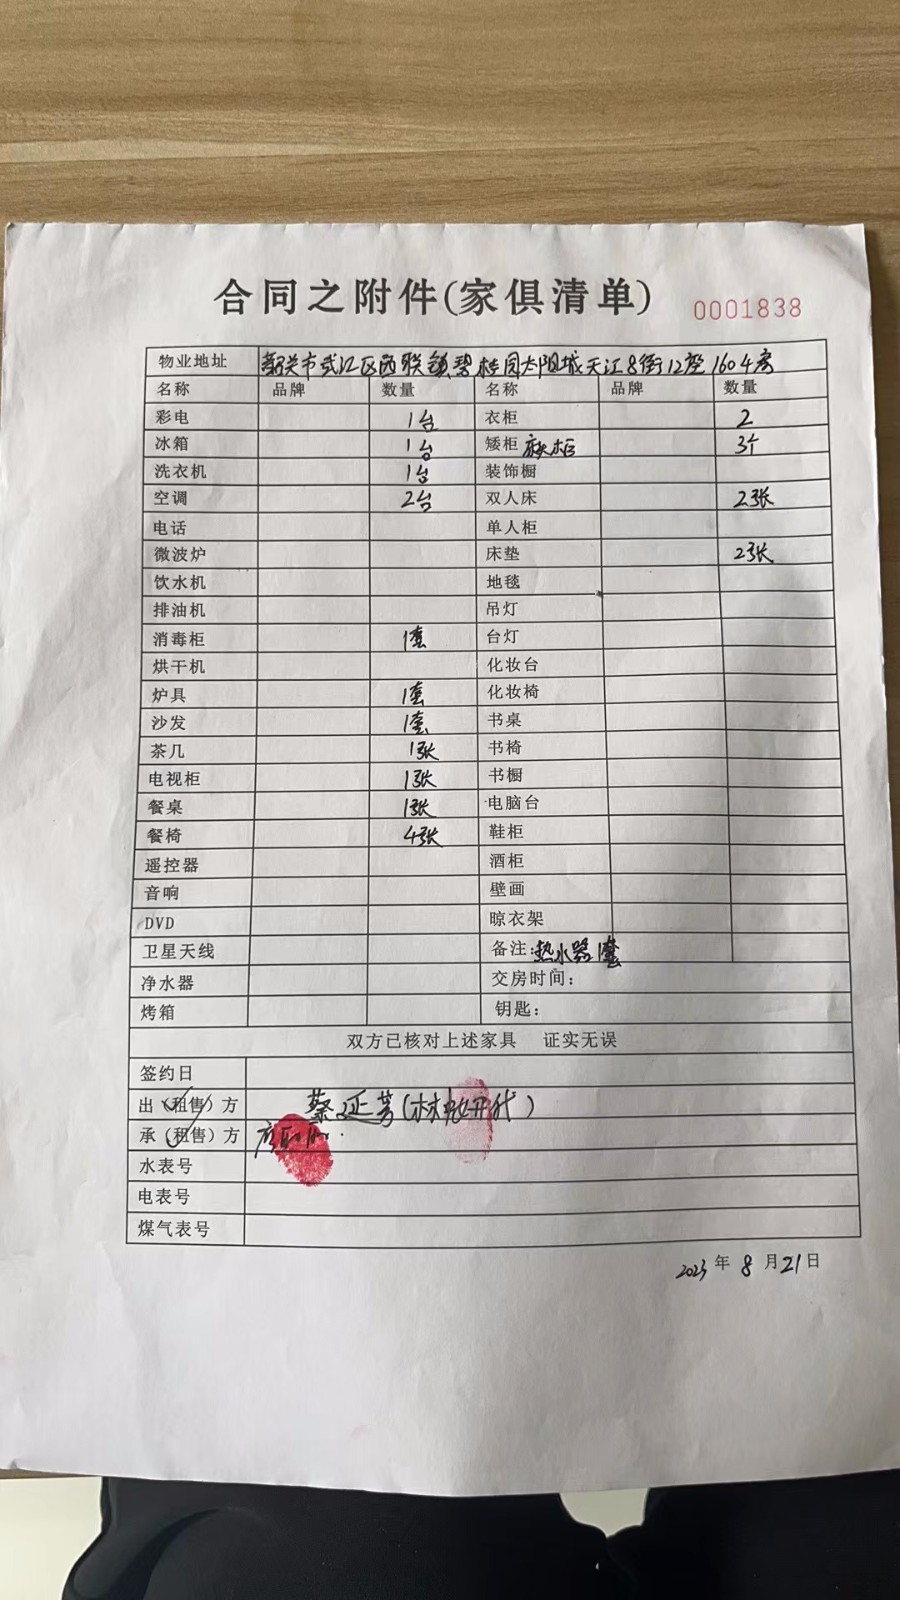 合同之附件(家俱清单) 0001838
物业地址 韶关市武江区西联镇碧桂园太阳城天江8街12座1604房
名称 品牌 数量 名称 品牌 数量
彩电 1台 衣柜 2
冰箱 1台 矮柜 床头柜 3个
洗衣机 1台 装饰橱
空调 2台 双人床 2张
电话 单人柜
微波炉 床垫 2张
饮水机 地毯
排油机 吊灯
消毒柜 1套 台灯
烘干机 化妆台
炉具 1套 化妆椅
沙发 1套 书桌
茶几 1张 书椅
电视柜 1张 书橱
餐桌 1张 电脑台
餐椅 4张 鞋柜
遥控器 酒柜
音响 壁画
DVD 晾衣架
卫星天线 备注:热水器1套
净水器 交房时间:
烤箱 钥匙:
双方已核对上述家具 证实无误
签约日
出(租售)方 蔡延芳(林 代)
承(租售)方
水表号
电表号
煤气表号
2023年8月21日